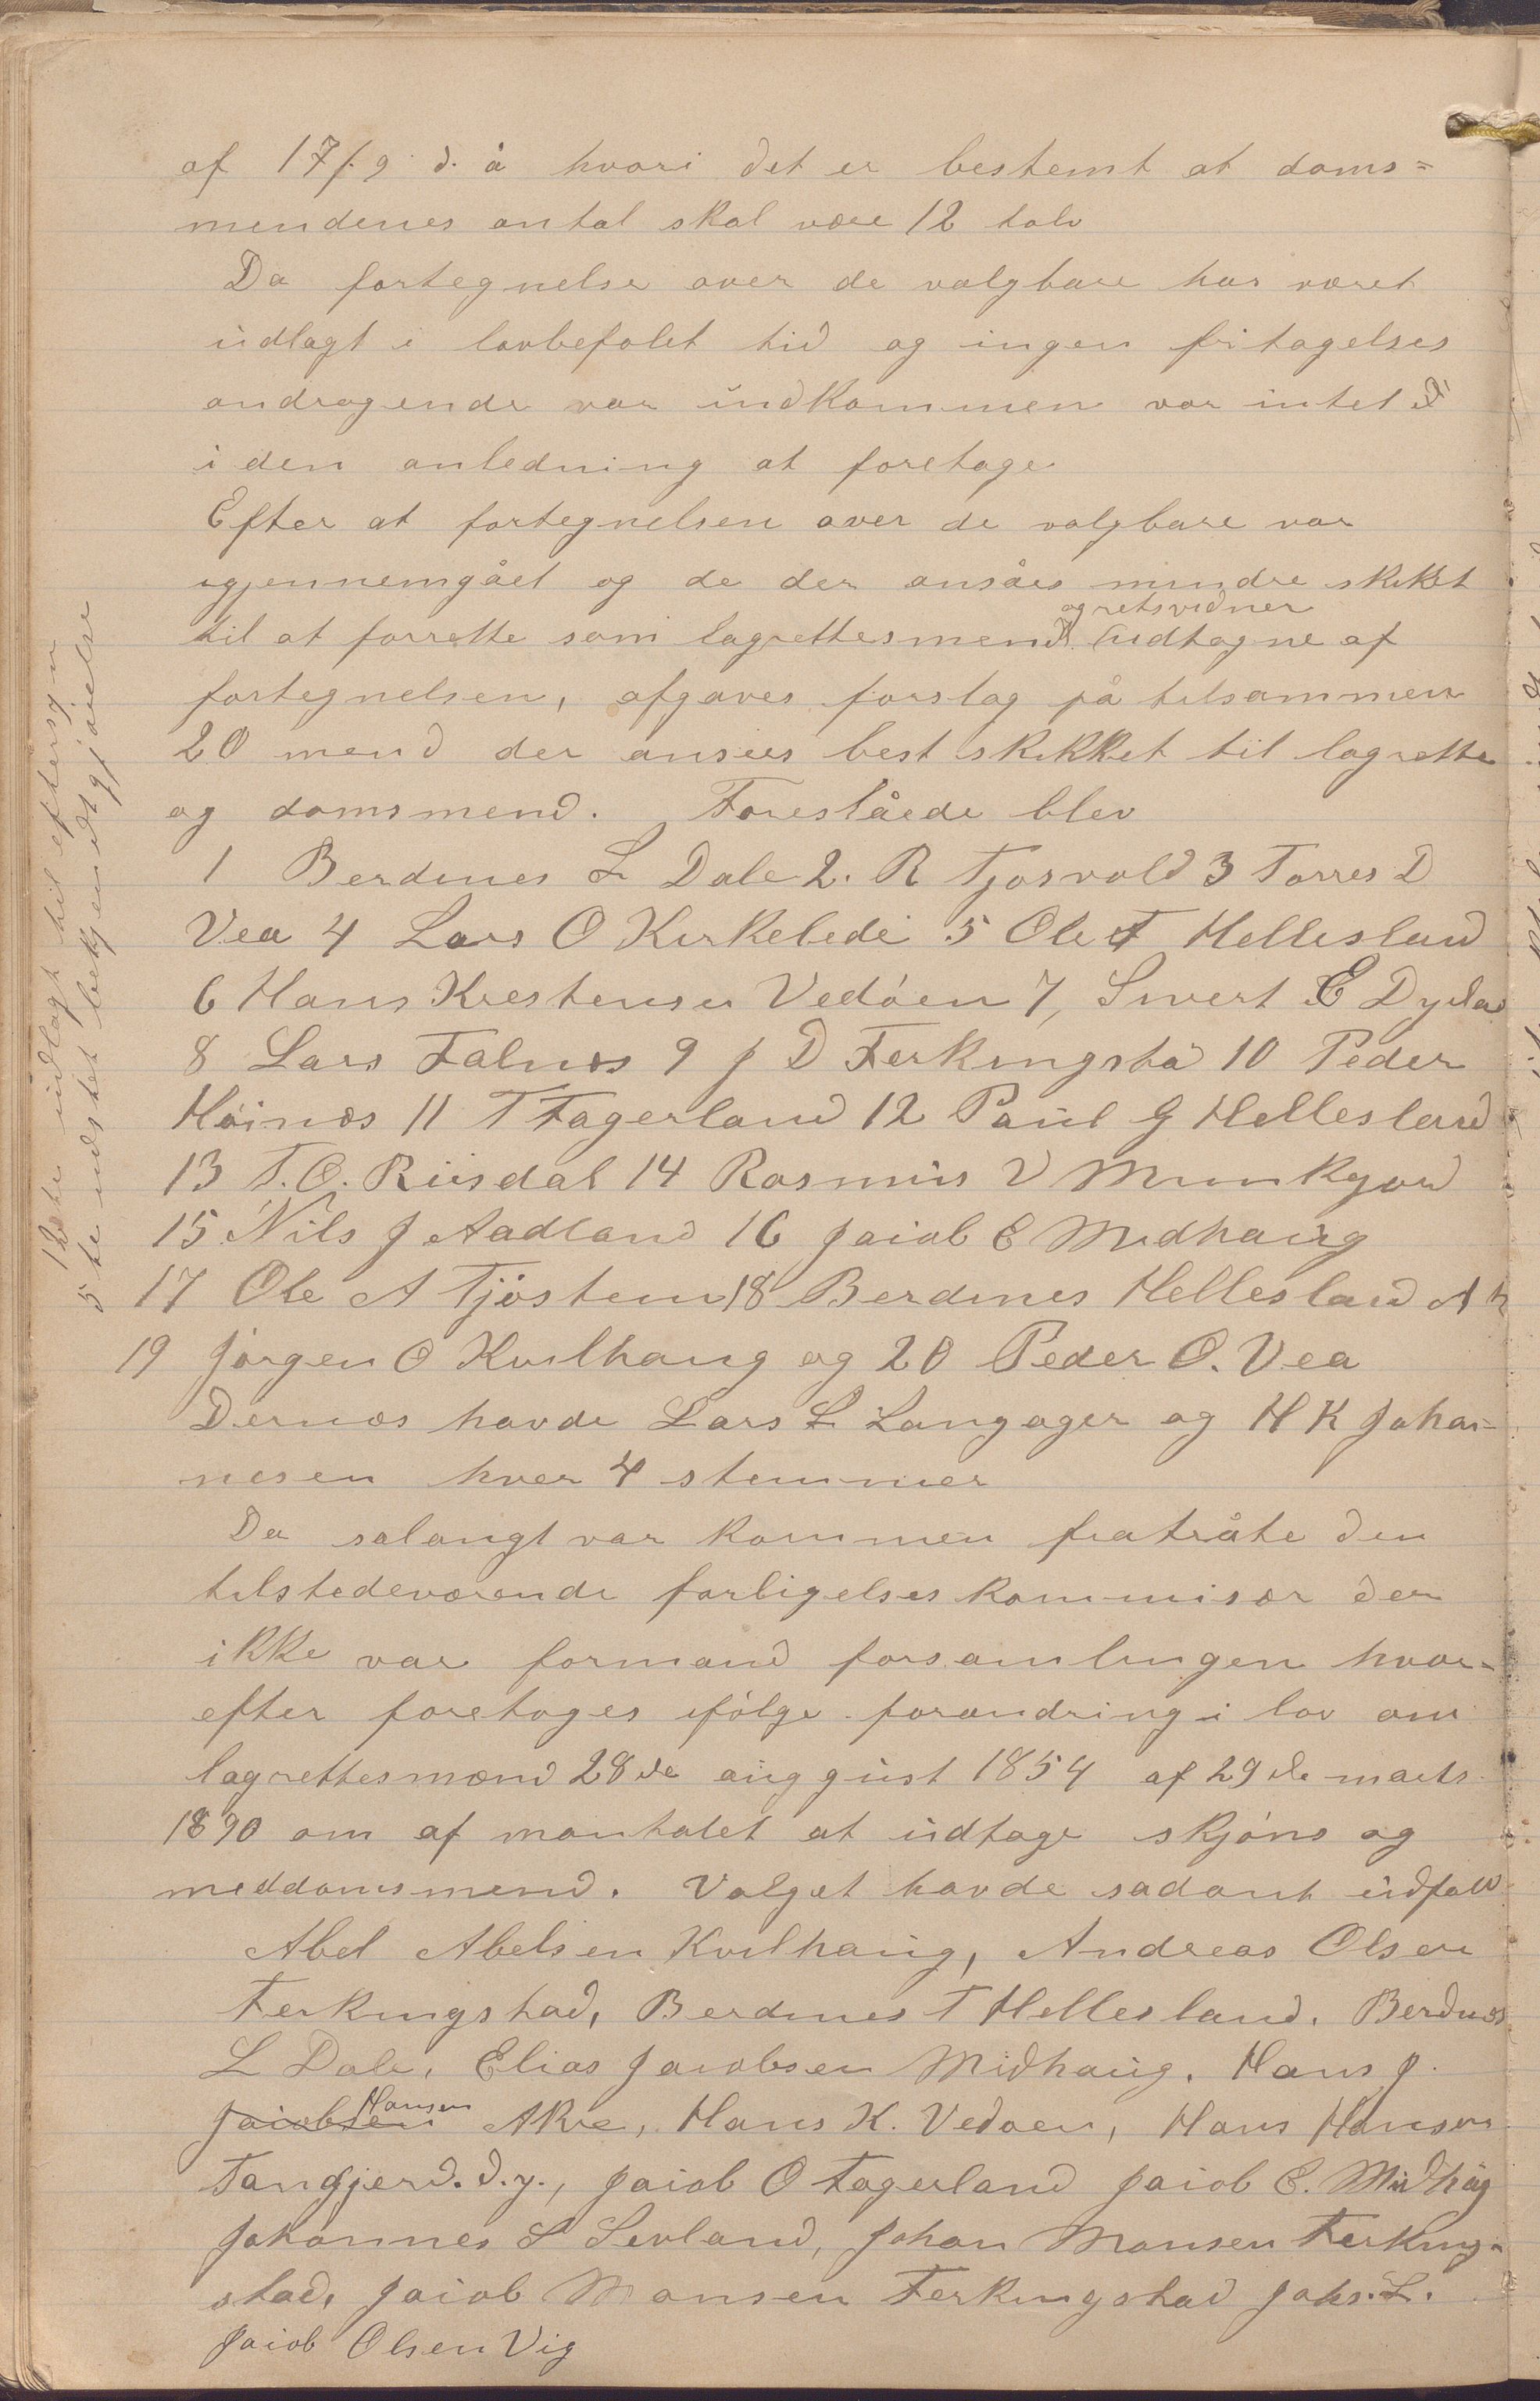 af 17/9 d. å hvori det er bestemt at doms=
mendenes antal skal være 12 tolv
Da fortegnelse over de valgbare har været
udlagt i lovbefalet tid og ingen fritagelses
andragende var indkommen var intet
i den anledning at foretage
Efter at fortegnelsen over de valgbare var
igjennemgået og de der ansåes mindre skiket
og retsvidner
til at forrette som lagrettesmend udtagne af
fortegnelsen, afgaves forslag på tilsammen
20 mend der ansees best skikket til lagrette
og domsmend. Foreslåede blev
1 Berdines L Dale 2. R Tjosvold 3 Torres D
Vea 4 Lars O Kirkeleite 5 Ole T Hellesland
6 Hans Krestensen Vedöen 7, Sivert E Dyrland
8 Lars Falnes 9 J D Ferkingsta 10 Peder
Höines 11 T Fagerland 12 Paul G Hellesland
13 T. O. Riisdal 14 Rasmus V Munkejord
15 Nils J Aadland 16 Jacob E Midhaug
17 Ole A Tjöstem 18 Berdines Hellesland
19 Jörgen O Kvilhaug og 20 Peder O. Vea
Dernæs havde Lars L Langager og H K Johan-
nesen hver 4 stemmer
Da salangt var kommen fratråte den
tilstedeværende forligelseskommisær der
ikke var formand forsamlingen hvor-
efter foretoges ifölge forandring i lov om
lagrettesmænd 28de auggust 1854 af 29de marts
1890 om af mantalet at udtage skjöns og
meddomsmend. Valget havde sadant udfald
Abel Abelsen Kvilhaug, Andreas Olsen
Ferkingstad, Berdines T Hellesland, Berdines
L Dale, Elias Jacobsen Midhaug, Hans J.
Hansen
Jacobsen Akre, Hans K. Vedöen, Hans Hansen
Tangjerd. d.y., Jacob O Fagerland Jacob E. Midhåg
Johannes S Sevland, Johan Monsen Ferking-
stad, Jacob Monsen Ferkingstad Johs. L.
Jacob Olsen Vig
12te udlagt til eftersyn
5te udstet bekjendtgjörelse